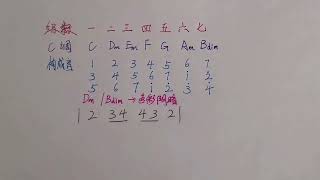 级数 一 二 三 四 五 六 七
C调 C Dm Em F G Am Bdim
构成音 1 2 3 4 5 6 7
3 4 5 6 7 i 2
5 6 7 i 2 3 4
Dm / Bdim → 色彩阴暗
| 2 34 43 2 |